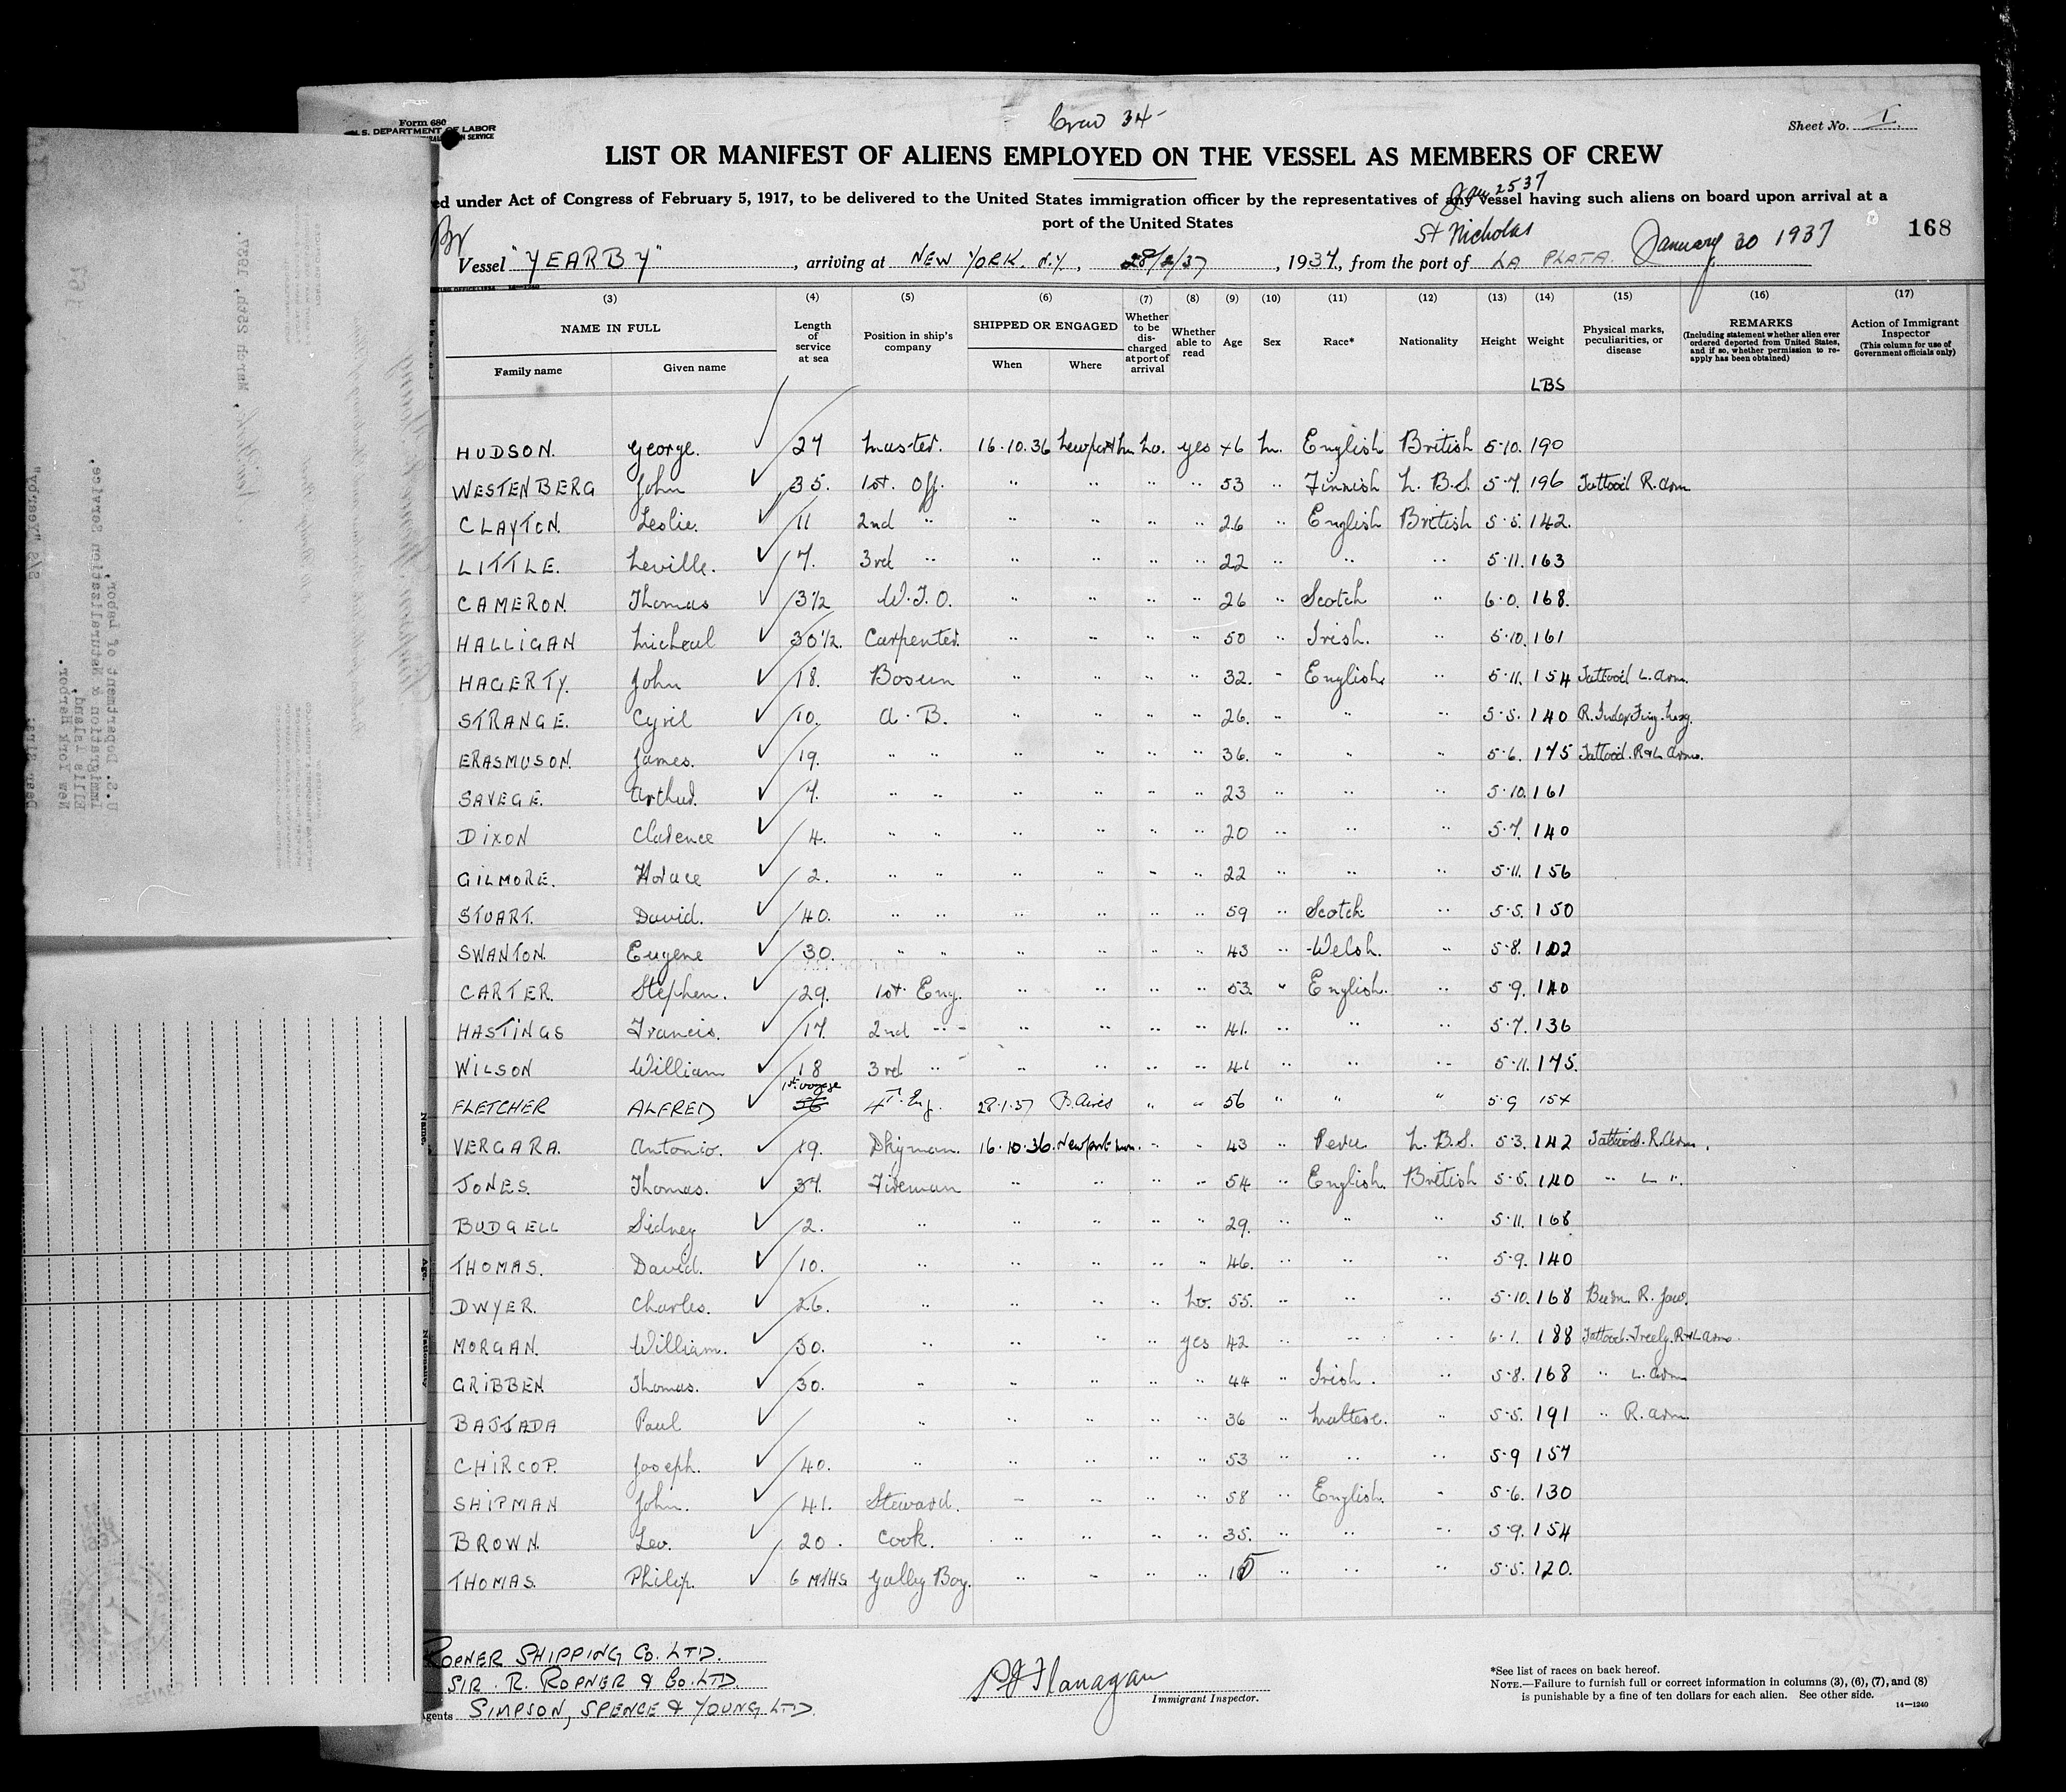 Form 680
U. S. DEPARTMENT OF LABOR
Crew 34-
Sheet No. I.
LIST OR MANIFEST OF ALIENS EMPLOYED ON THE VESSEL AS MEMBERS OF CREW
ed under Act of Congress of February 5, 1917, to be delivered to the United States immigration officer by the representatives of any vessel having such aliens on board upon arrival at a
port of the United States
168
Br
St Nicholas
Vessel "YEARBY", arriving at NEW YORK. N.Y., 28/2/37, 1937, from the port of LA PLATA. January 30 1937
(3) (4) (5) (6) (7) (8) (9) (10) (11) (12) (13) (14) (15) (16) (17)
NAME IN FULL
Family name Given name
Length of service at sea
Position in ship's company
SHIPPED OR ENGAGED
When Where
Whether to be discharged at port of arrival
Whether able to read
Age Sex Race* Nationality Height Weight
LBS
Physical marks, peculiarities, or disease
REMARKS
(Including statement whether alien ever ordered deported from United States, and if so, whether permission to reapply has been obtained)
Action of Immigrant Inspector
(This column for use of Government officials only)
HUDSON. George. ✓ 27 Master. 16.10.36 Newport Mon No. yes 46 M. English British 5·10. 190
WESTENBERG John ✓ 35. 1st. Off. " " " " 53 " Finnish N. B.S. 5·7. 196 Tattood R. arm
CLAYTON. Leslie. ✓ 11 2nd " " " " " 26 " English British 5·5. 142.
LITTLE. Neville. ✓ 7. 3rd " " " " " 22 " " " 5·11. 163
CAMERON. Thomas ✓ 3½ W.T.O. " " " " 26 " Scotch " 6·0. 168.
HALLIGAN Micheal ✓ 30½. Carpenter. " " " " 50 " Irish. " 5·10. 161
HAGERTY. John ✓ 18. Bosun " " " " 32. " English. " 5·11. 154 Tattood L. arm.
STRANGE. Cyril ✓ 10. A.B. " " " " 26. " " " 5·5. 140 R. Index Fing.
ERASMUSON. James. ✓ 19. " " " " " " 36. " " " 5·6. 175 Tattood. R & L arms.
SAVEGE. Arthur. ✓ 7. " " " " " " 23 " " " 5·10. 161
DIXON Clarence ✓ 4. " " " " " " 20 " " " 5·7. 140
GILMORE. Horace ✓ 2. " " " " " " 22 " " " 5·11. 156
STUART. David. ✓ 40. " " " " " " 59 " Scotch " 5·5. 150
SWANTON. Eugene ✓ 30. " " " " " " 43 " Welsh. " 5·8.
CARTER. Stephen. ✓ 29. 1st. Eng. " " " " 53. " English. " 5·9. 140
HASTINGS Francis. ✓ 17. 2nd " " " " " 41. " " " 5·7. 136
WILSON William ✓ 18 3rd " " " " " 41 " " " 5·11. 175.
FLETCHER ALFRED ✓ 1st. voyage 4th. Eng. 28·1·37 B. Aires " " 56 " " " 5·9 154
VERGARA. Antonio. ✓ 19. Dkyman. 16·10·36. Newport Mon. " " 43 " Peru N. B.S. 5·3. 142 Tattood. R. Arm.
JONES. Thomas. ✓ 37. Fireman " " " " 54 " English. British 5·5. 140 " L "
BUDGELL Sidney ✓ 2. " " " " " 29. " " " 5·11. 168
THOMAS. David. ✓ 10. " " " " " 46. " " " 5·9. 140
DWYER. Charles. ✓ 26. " " " " No. 55. " " " 5·10. 168 Burn. R. Jaw.
MORGAN. William. ✓ 30. " " " " yes 42 " " " 6·1. 188 Tattood. Freely. R & L arms.
GRIBBEN Thomas. ✓ 30. " " " " " 44 " Irish. " 5·8. 168 " L. arm
BAJTADA Paul ✓ " " " " " 36 " Maltese. " 5·5. 191 " R. arm
CHIRCOP. Joseph. ✓ 40. " " " " " 53 " " " 5·9 157
SHIPMAN John. ✓ 41. Steward. " " " " 58 " English. " 5·6. 130
BROWN. Leo. ✓ 20. Cook. " " " " 35. " " " 5·9. 154
THOMAS. Philip. ✓ 6 MTHS. Gally Boy. " " " " " " " 5·5. 120.
ROPNER SHIPPING CO. LTD.
SIR. R. ROPNER & CO. LTD
gents SIMPSON, SPENCE & YOUNG LTD.
Flanagan
Immigrant Inspector.
*See list of races on back hereof.
NOTE.—Failure to furnish full or correct information in columns (3), (6), (7), and (8)
is punishable by a fine of ten dollars for each alien. See other side.
14—1240
March 25th, 1937.
S/S "Yearby"
U.S. Department of Labor,
Immigration & Naturalization Service,
Ellis Island,
New York Harbor.
Dear Sirs: